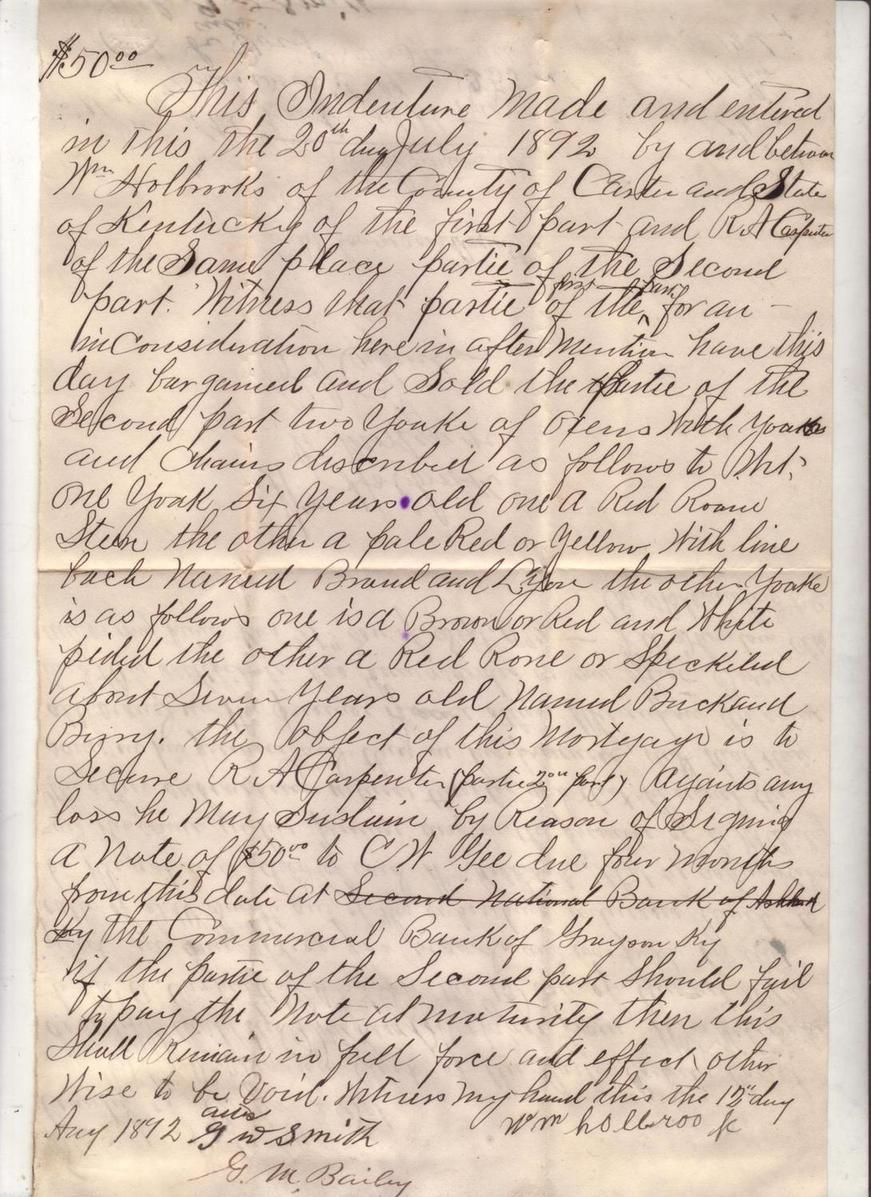 $50 00
This Indenture made and entered
in this the 20th day July 1892 by and between
Wm Holbrooks of the County of Carter and State
of Kentucky of the first part and R A Carpenter
of the Same place partie of the Second
part. Witness that partie of the first part for an
inconsideration here in after Mention have this
day bargained and Sold the partie of the
Second part two Yoake of Oxens With Yoaks
and Chains discribed as follows to Wit;
One Yoak Six Years old one a Red Roane
Steer the other a pale Red or Yellow With line
back Named Brand and Lyon the other Yoake
is as follows one is a Brown or Red and White
pided the other a Red Rone or Speckeled
about Seven Years old Named Buck and
Berry. the object of this Mortgage is to
Secure R A Carpenter (partie 2nd part) againts any
loss he May Sustain by Reason of Signing
a Note of $50 00 to C W Gee due four Months
from this date at Second National Bank of Ashland
Ky the Commercial Bank of Grayson Ky
if the partie of the Second part Should fail
to pay the Note at maturity then this
Shall Remain in full force and effect other
Wise to be Void. Witness My hand this the 12" day
Aug 1892 G W Smith Wm holbrook
G. M. Bailey